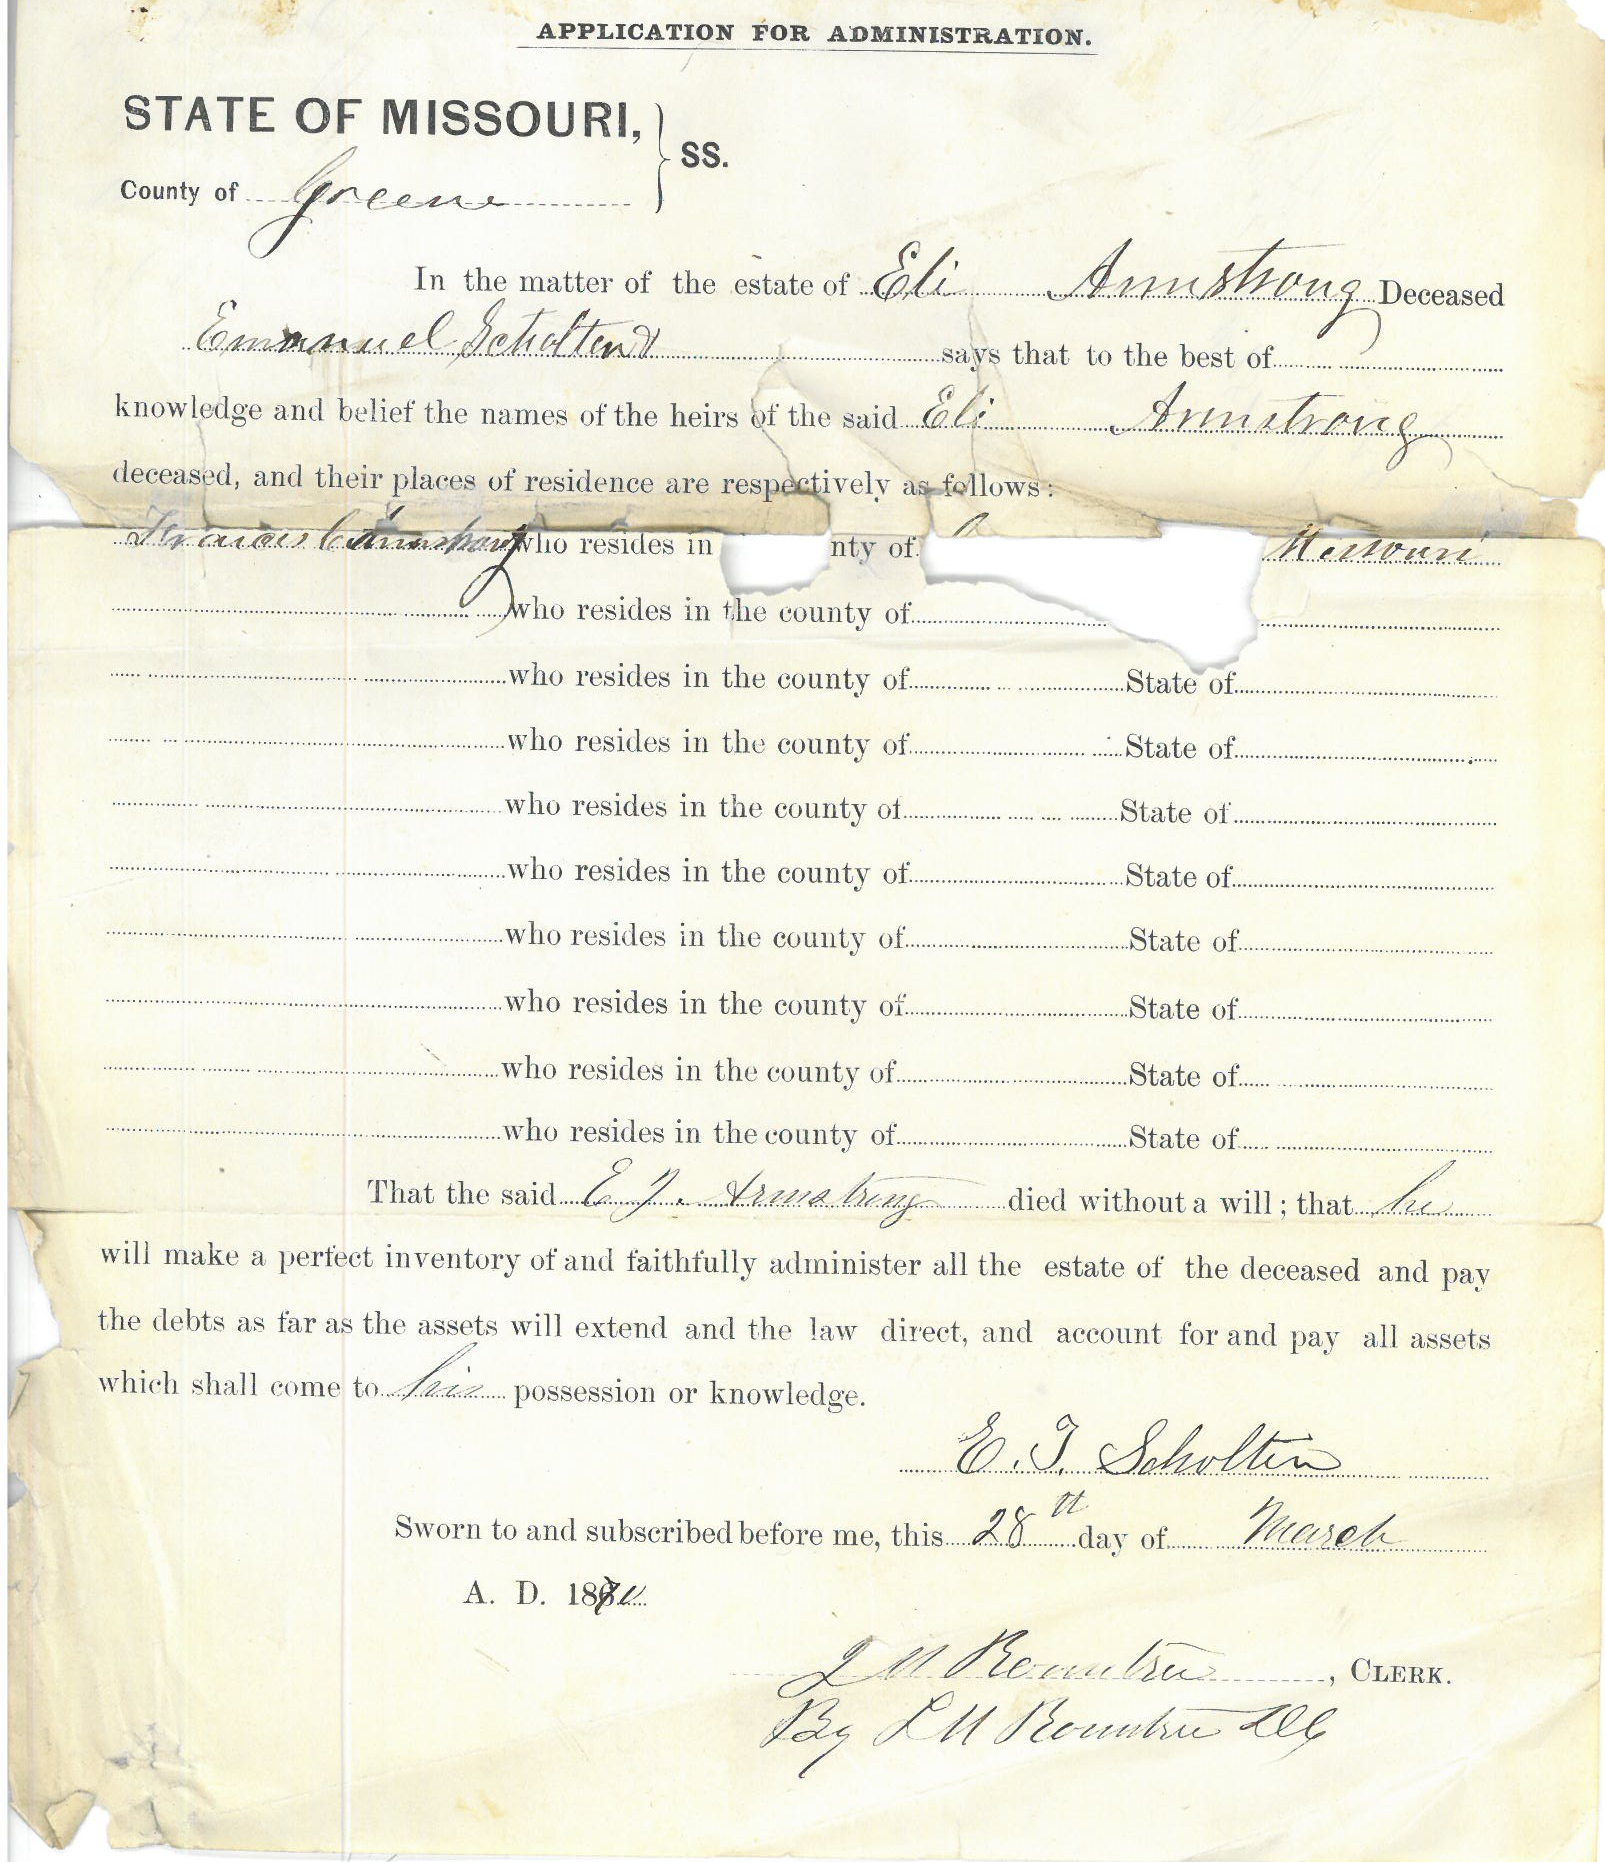 APPLICATION FOR ADMINISTRATION.
STATE OF MISSOURI,
SS.
County of Greene
In the matter of the estate of Eli Armstrong Deceased
Emanuel Scholten says that to the best of
knowledge and belief the names of the heirs of the said Eli Armstrong
deceased, and their places of residence are respectively as follows:
Francis C Armstrong who resides in nty of Missouri
who resides in the county of
who resides in the county of State of
who resides in the county of State of
who resides in the county of State of
who resides in the county of State of
who resides in the county of State of
who resides in the county of State of
who resides in the county of State of
who resides in the county of State of
That the said E J. Armstrong died without a will; that he
will make a perfect inventory of and faithfully administer all the estate of the deceased and pay
the debts as far as the assets will extend and the law direct, and account for and pay all assets
which shall come to his possession or knowledge.
E. T. Scholten
Sworn to and subscribed before me, this 28th day of March
A. D. 1870
J M Rountree, CLERK.
By L M Rountree DC